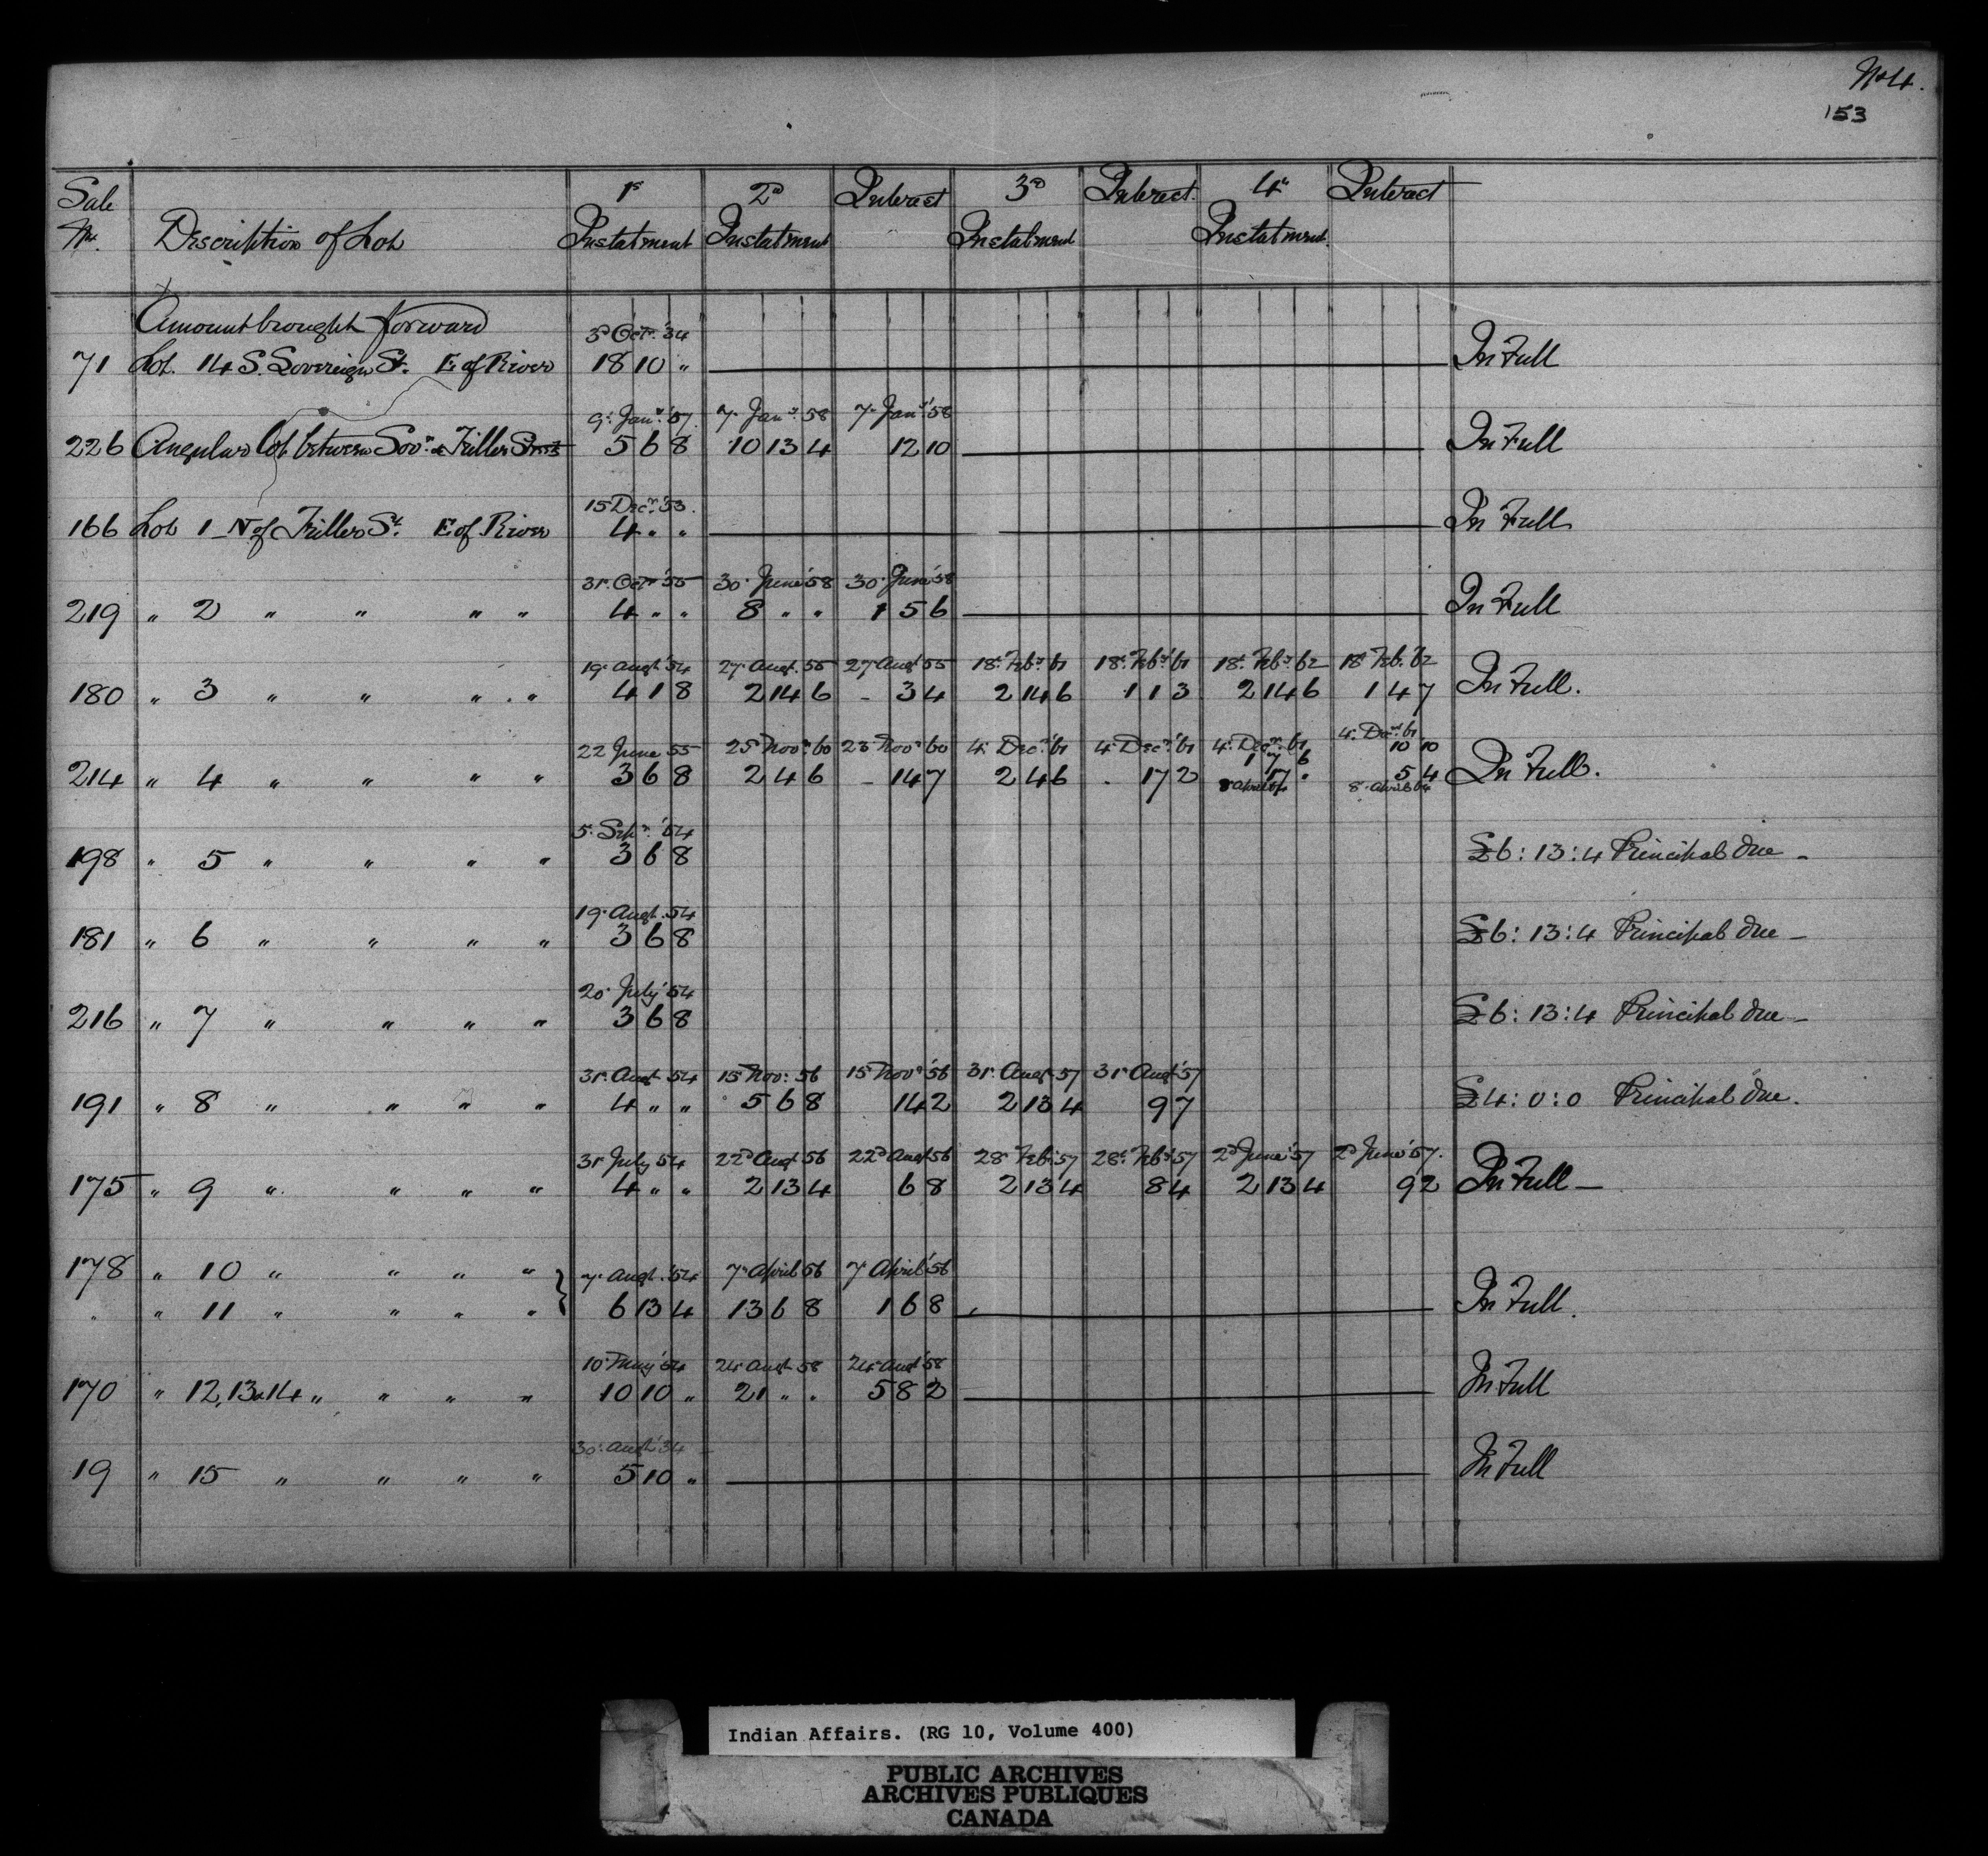 No 4.
153
Sale No. Description of Lot 1st Instalment 2d Instalment Interest 3d Instalment Interest. 4th Instalment. Interest
Amount brought forward
3d Octr. '34
71 Lot. 14 S. Sovereign St. E of River 18 10 " In Full
9th Jany. '57. 7th Jany. 58 7th Jany. '58
226 Angular Lot between Sovn. & Fuller Streets 5 6 8 10 13 4 12 10 In Full
15 Decr. '53.
166 Lot 1 N of Fuller St. E of River 4 " " In Full
31st Octr. '55 30th June '58 30th June '58
219 " 2 " " " " 4 " " 8 " " 1 5 6 In Full
19th Augt. 54 27th Augt. 55 27 Augt 55 18th Feby. 61 18th Feby. '61 18th Feby. 62 18th Feb. '62
180 " 3 " " " " 4 1 8 2 14 6 - 3 4 2 14 6 1 1 3 2 14 6 1 4 7 In Full.
22 June 55 25th Novr. 60 23 Novr. 60 4th Decr. '61 4th Decr. '61 4th Decr. 61 4th Decr. 61
1 7 6 10 10
214 " 4 " " " " 3 6 8 2 4 6 - 14 7 2 4 6 17 2 17 " 5 4 In Full.
8 April 64 8th April 64
5th Sepr. '54
198 " 5 " " " " 3 6 8 £6 : 13 : 4 Principal due -
19th Augt. 54
181 " 6 " " " " 3 6 8 £6 : 13 : 4 Principal due -
20th July '54
216 " 7 " " " " 3 6 8 £6 : 13 : 4 Principal due -
31st Augt 54 15th Nov: 56 15th Novr '56 31st Augt 57 31st Augt '57
191 " 8 " " " " 4 " " 5 6 8 14 2 2 13 4 9 7 £4 : 0 : 0 Principal due.
31st July 54 22d Augt 56 22d Augt 56 28th Feb. '57 28th Feby 57 2d June '57 2d June '57.
175 " 9 " " " " 4 " " 2 13 4 6 8 2 13 4 8 4 2 13 4 9 2 In Full -
178 " 10 " " " "
7th Augt. '54 7th April 56 7th April '56
" " 11 " " " " 6 13 4 13 6 8 1 6 8 In Full.
10th May '54 24th Augt 58 24th Augt '58
170 " 12, 13 & 14 " " " " 10 10 " 21 " " 5 8 2 In Full
30th Augt '34
19 " 15 " " " " 5 10 " In Full
Indian Affairs. (RG 10, Volume 400)
PUBLIC ARCHIVES
ARCHIVES PUBLIQUES
CANADA